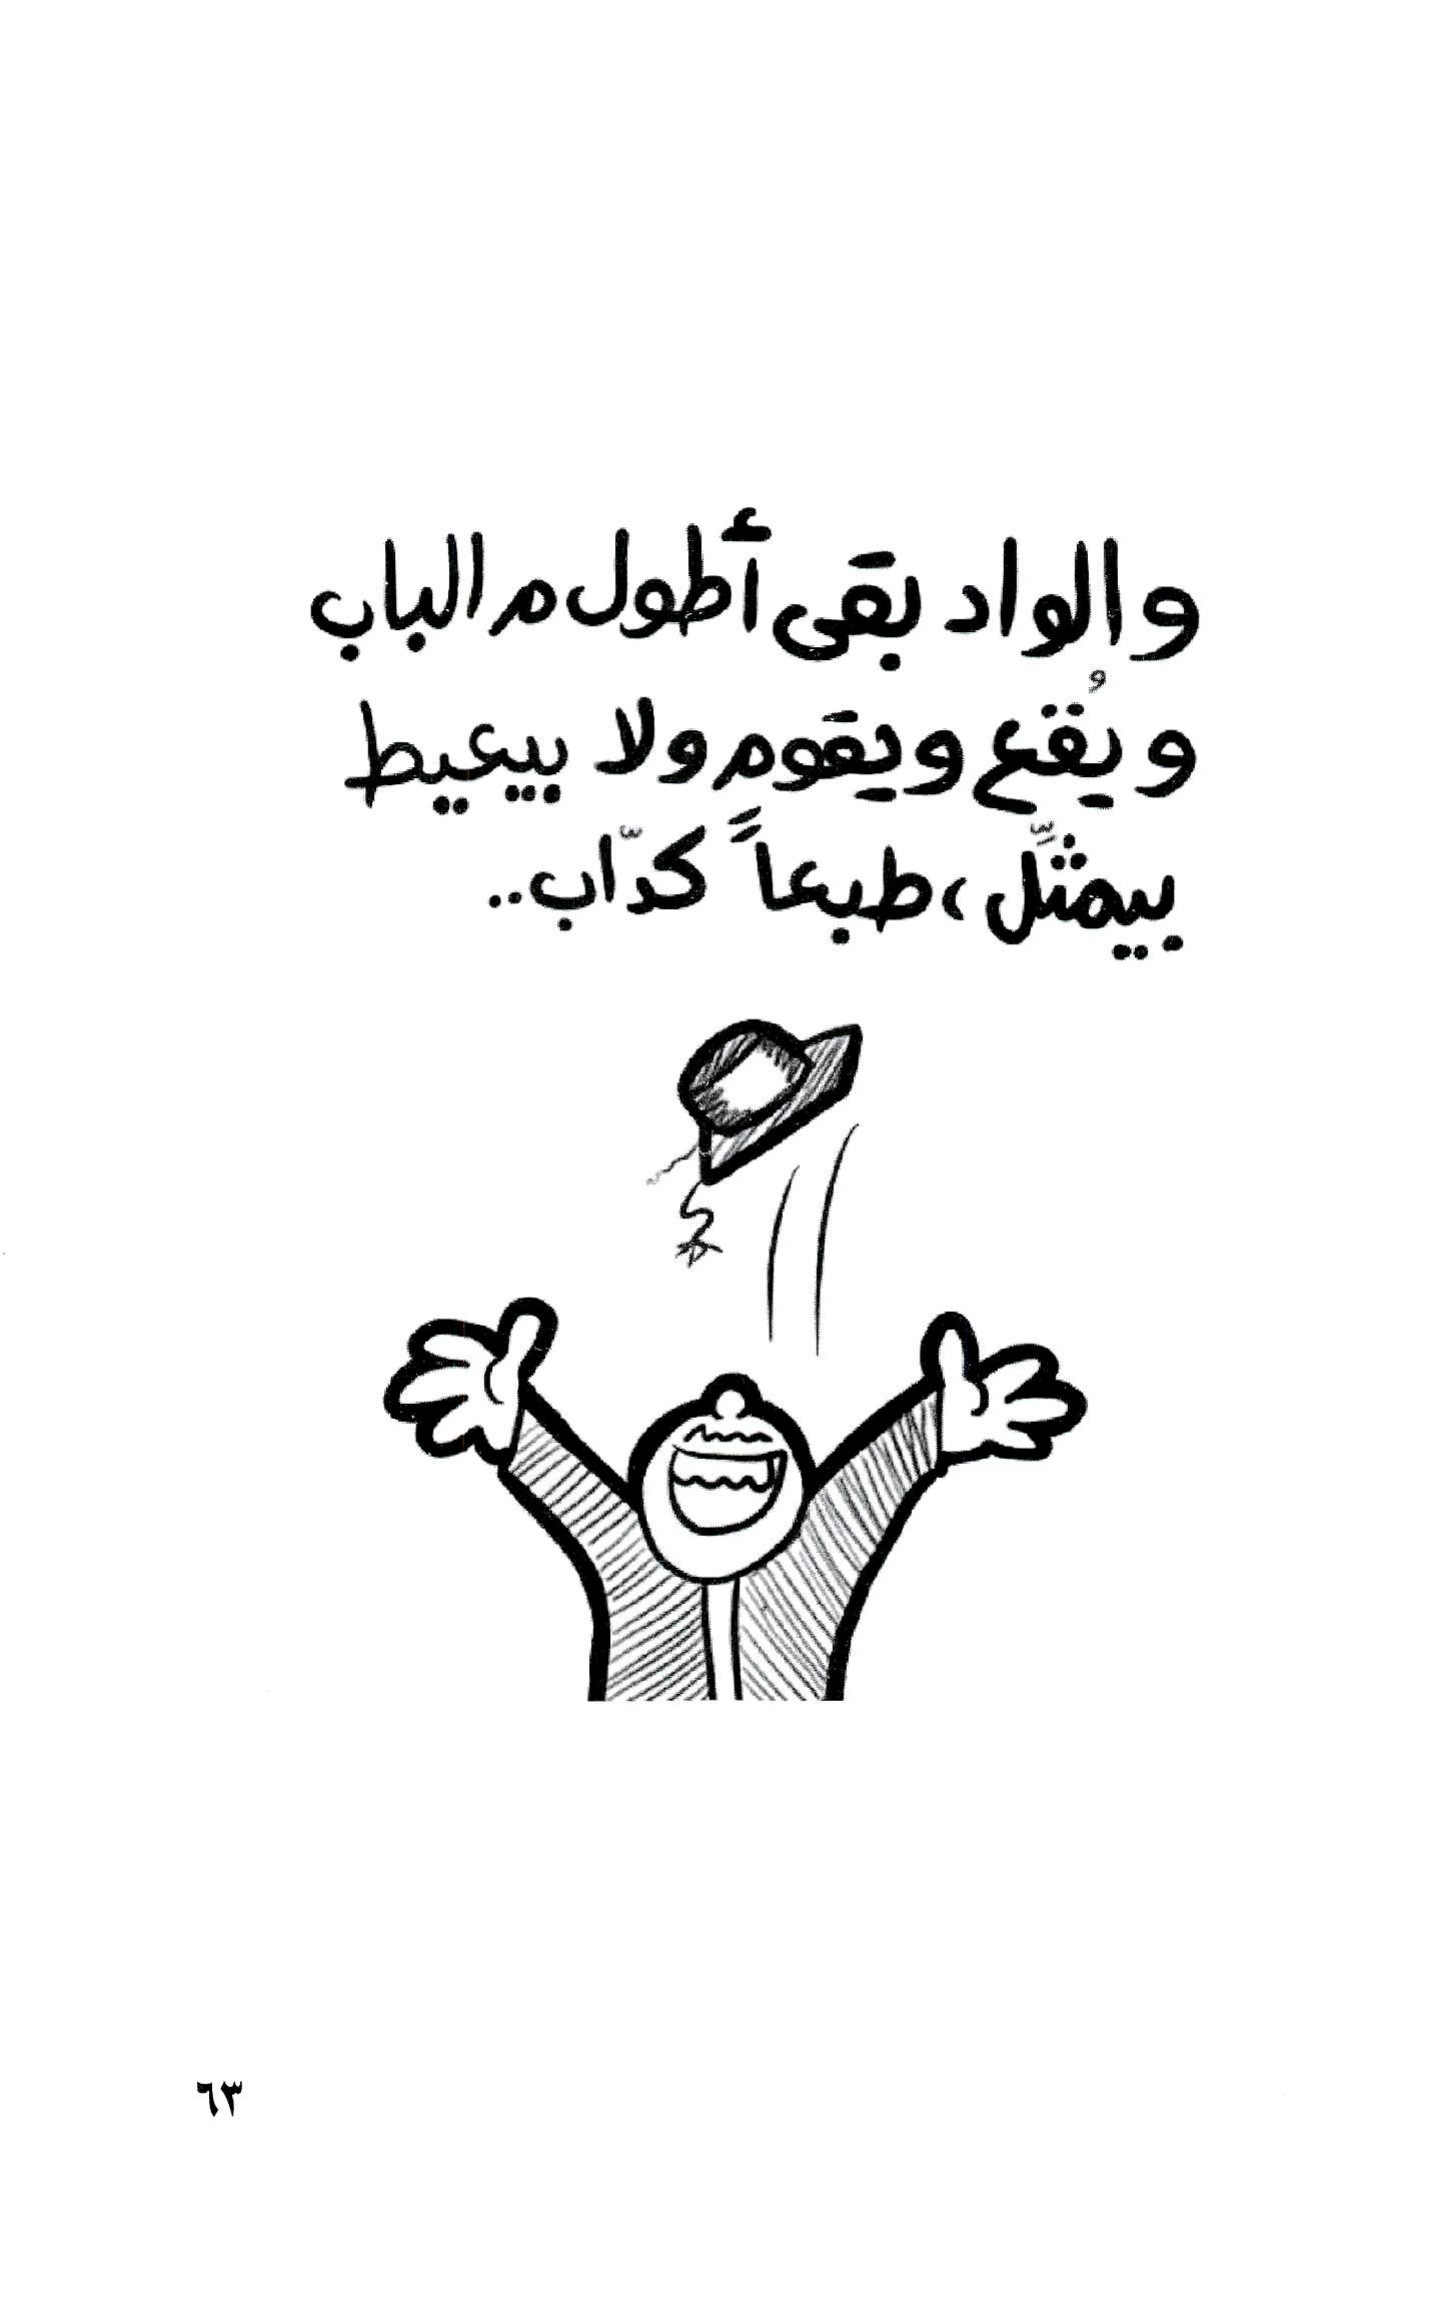 والواد بقى أطول م الباب
ويُقع ويقوم ولا بيعيط
بيمثِّل، طبعاً كدّاب..
٦٣